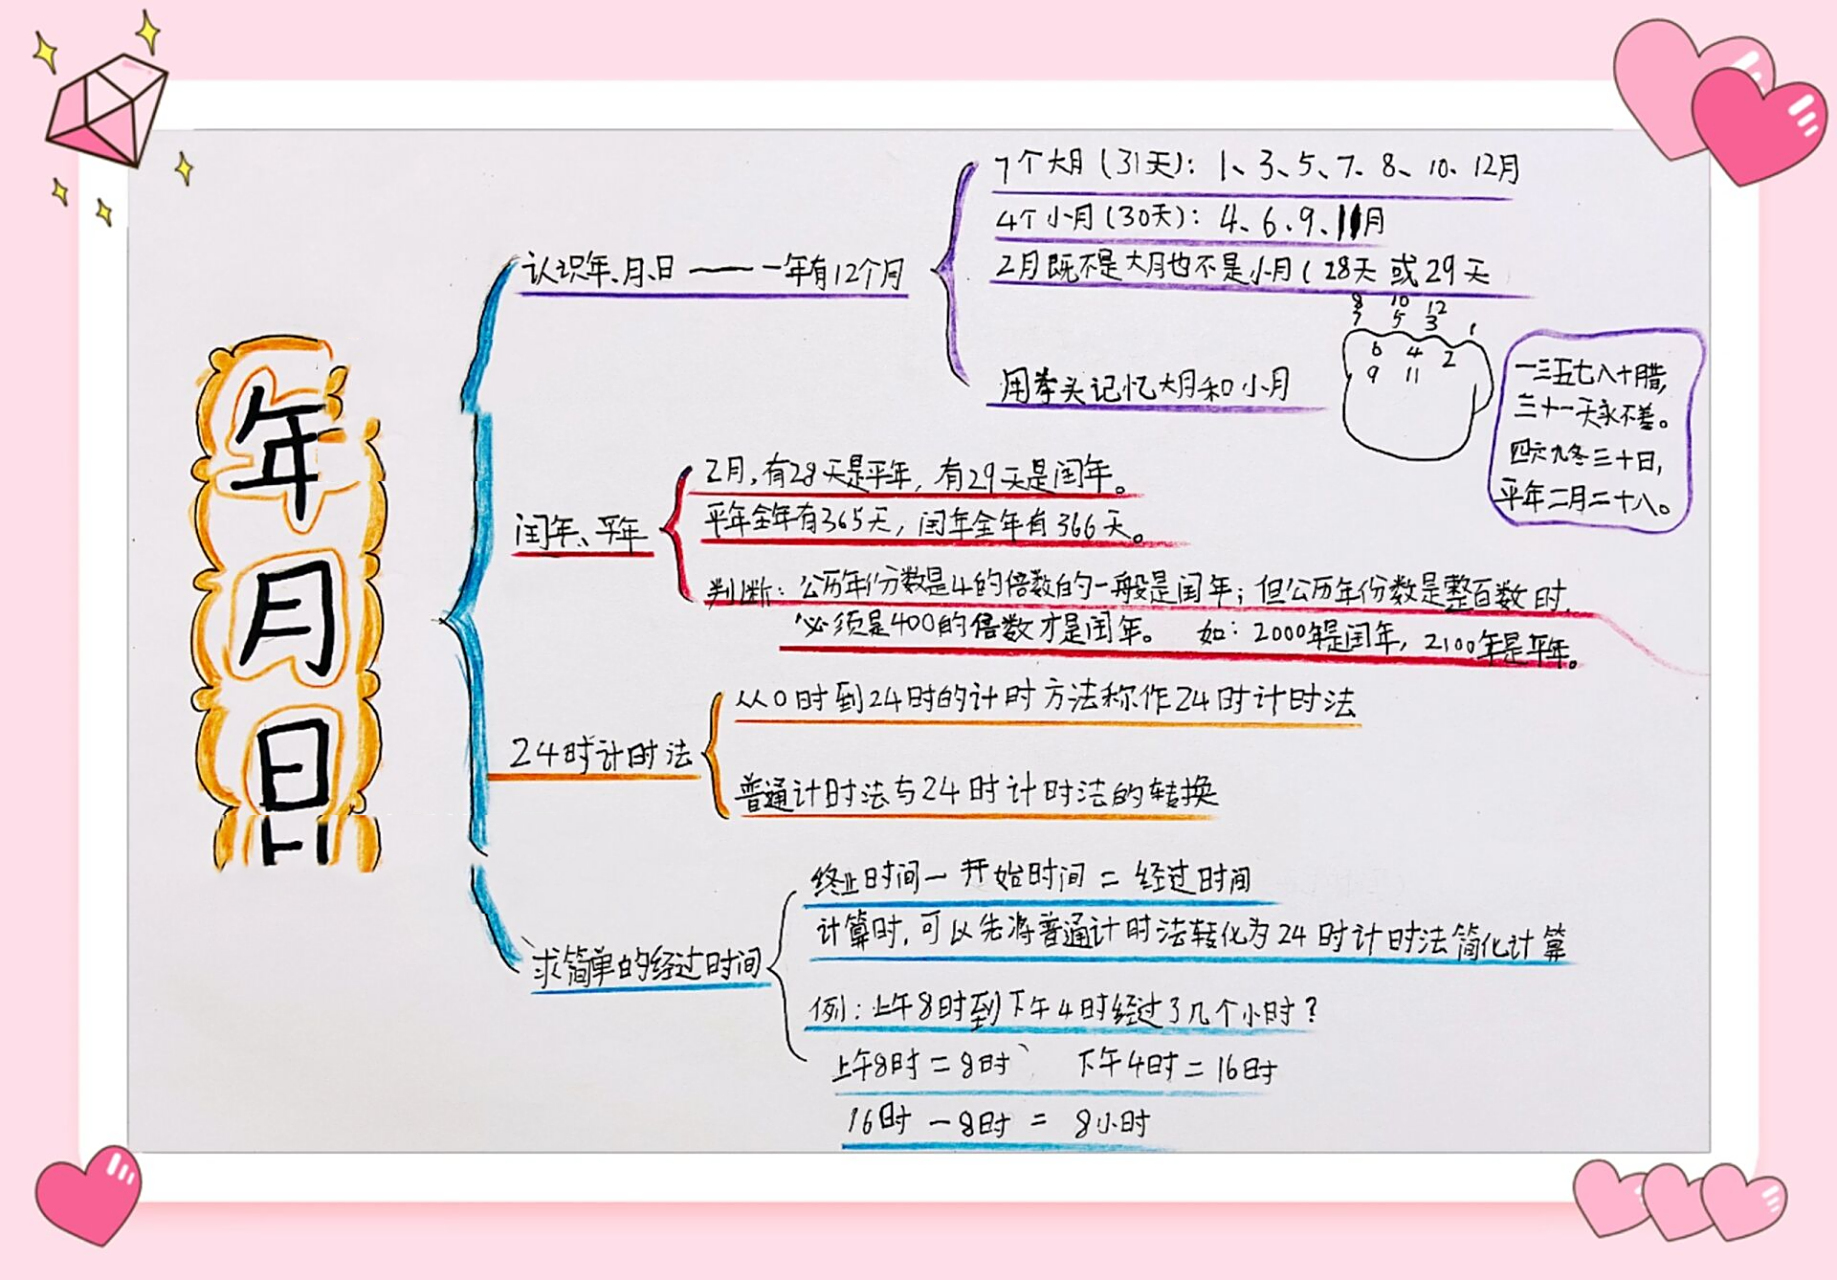 年月日
认识年、月、日 —— 一年有12个月
7个大月(31天): 1、3、5、7、8、10、12月
4个小月(30天): 4、6、9、11月
2月既不是大月也不是小月(28天 或29天
用拳头记忆大月和小月
8 10 12
7 5 3 1
6 4 2
9 11
一三五七八十腊,
三十一天永不差。
四六九冬三十日,
平年二月二十八。
闰年、平年
2月,有28天是平年, 有29天是闰年。
平年全年有365天, 闰年全年有366天。
判断: 公历年份数是4的倍数的一般是闰年; 但公历年份数是整百数时,
必须是400的倍数才是闰年。 如: 2000年是闰年, 2100年是平年。
24时计时法
从0时到24时的计时方法称作24时计时法
普通计时法与24时计时法的转换
求简单的经过时间
终止时间－开始时间＝经过时间
计算时,可以先将普通计时法转化为24时计时法简化计算
例:上午8时到下午4时经过了几个小时?
上午8时＝8时、 下午4时＝16时
16时－8时＝8小时